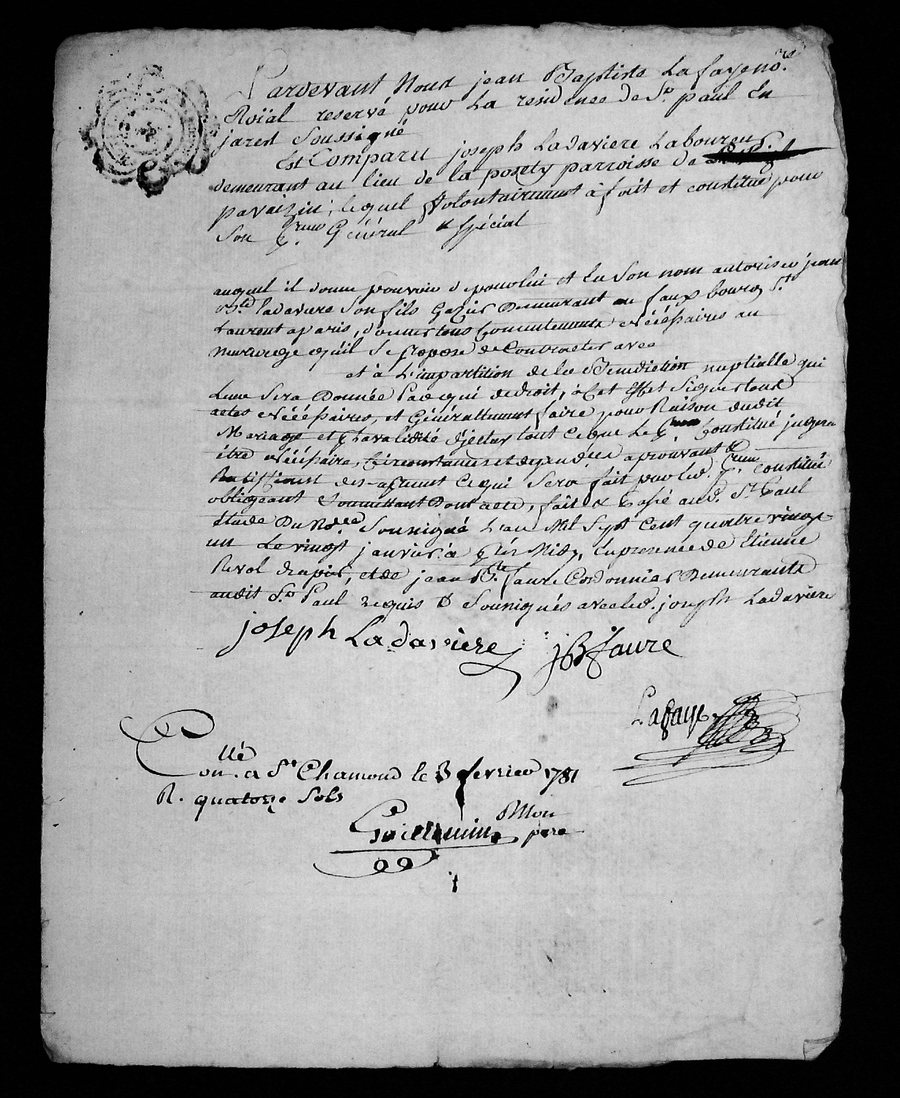 Pardevant Nous jean Baptiste Lafaye no.re
Roïal reservé pour La residence de St. paul En
jarest Soussigné
Est Comparu joseph Ladaviere Laboureur
demeurant au lieu de la parroisse de
pavaizin, lequel Volontairement à fait et constitué pour
Son Pr. Général & Spécial
auquel il donne pouvoir de pour lui et En Son nom autoriser jean
Bte. Ladaviere Son fils Gazier Demeurant au fauxbourg St.
Laurent a paris, donner tous Consentements Nécéssaires au
Mariage quil Se propose de Contracter avec
et à L'impartition de la Bénédiction nuptialle qui
Leur Sera Donnée Par qui de droit, à Cet Effet Signer tous
actes Nécéssaires, et Généralement faire pour Raison dudit
Mariage et tout ce que Le Constitué jugera
être Nécéssaire, Circonstances et dépendces. aprouvant &
des apresent Ce qui Sera fait par led. Pr. constitué
obligeant Soumettant Dont acte, fait & Passé aud. St. Paul
Etude Du No.re Soussigné L'an Mil Sept Cent quatre vingt
un Le vingt janvier à près Midy, En presence de Etienne
Revol drapier, et de jean Bte. faure Cordonnier Demeurants
audit St. Paul requis & Soussignés avec led. joseph Ladaviere
joseph Ladaviere jB faure
Lafaye
Con.llé a St. Chamond le 3 fevrier 1781
R. quatorze Sols
Guillemin Mon
pere